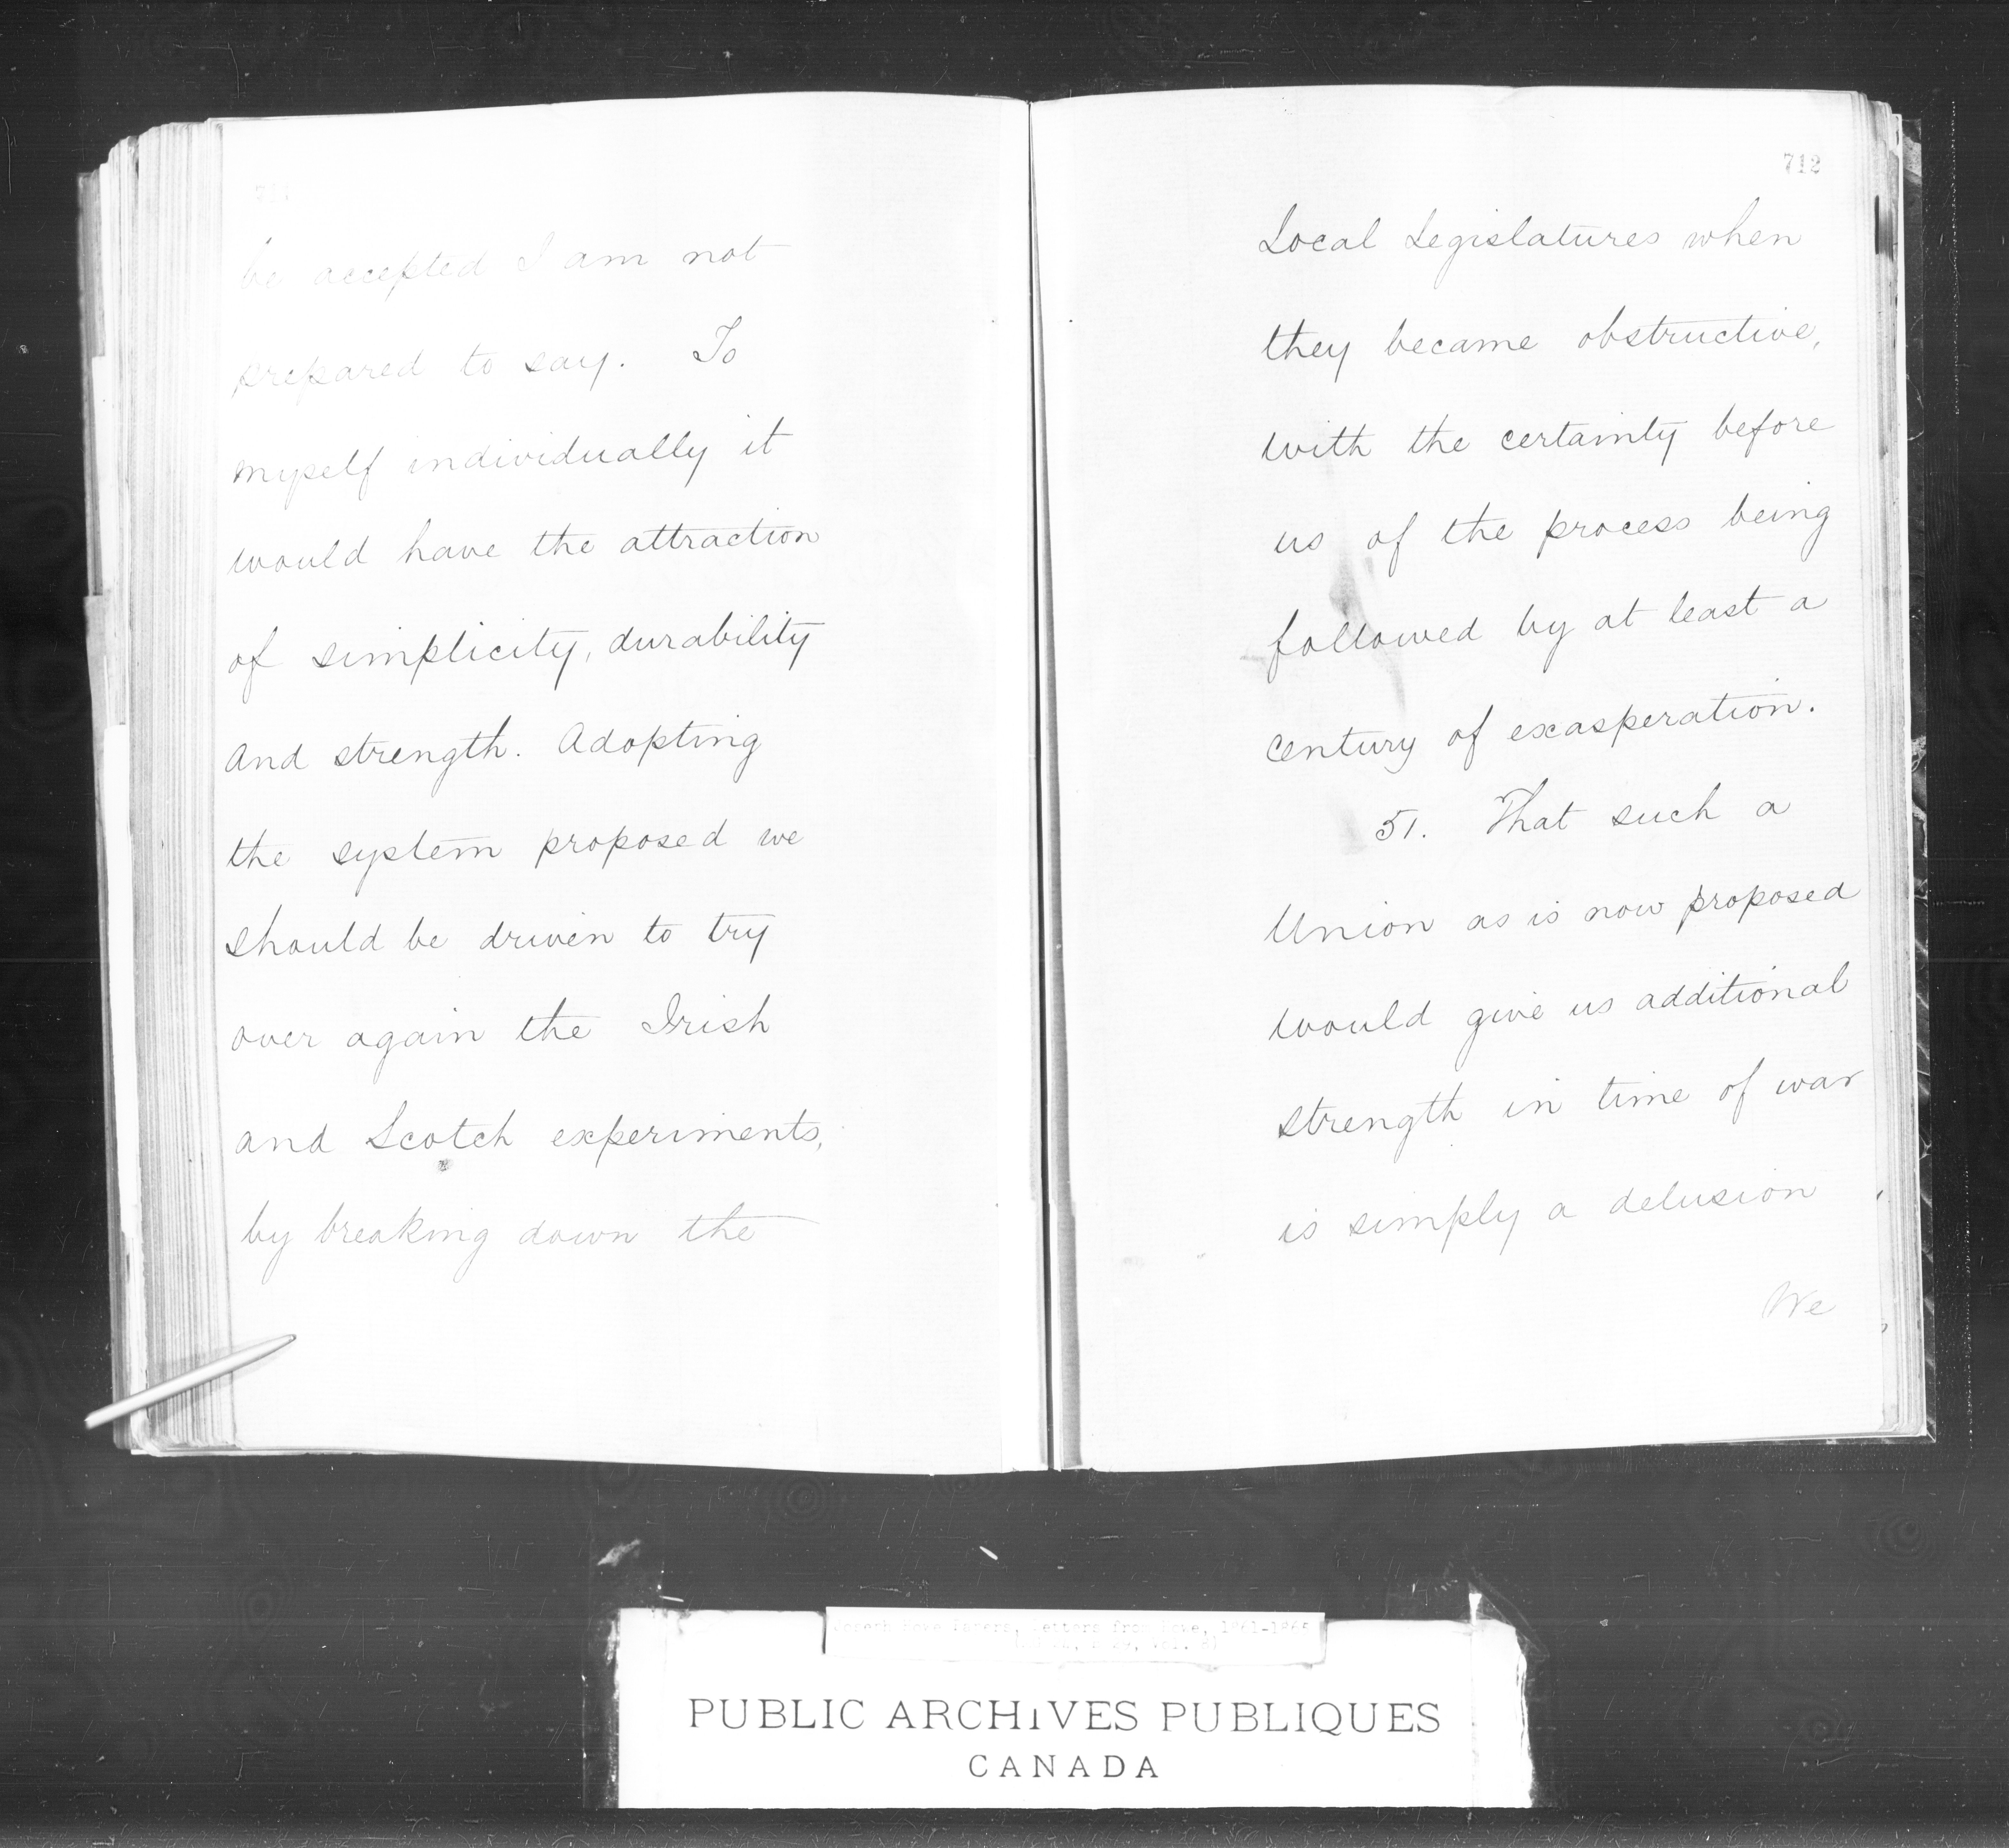 be accepted I am not
prepared to say. To
myself individually it
would have the attraction
of simplicity, durability
and strength. Adopting
the system proposed we
should be driven to try
over again the Irish
and Scotch experiments,
by breaking down the
712
Local Legislatures when
they became obstructive,
with the certainty before
us of the process being
followed by at least a
century of exasperation.
51. That such a
Union as is now proposed
would give us additional
strength in time of war
is simply a delusion
We
Joseph Howe Papers, Letters from Howe,
PUBLIC ARCHIVES PUBLIQUES
CANADA